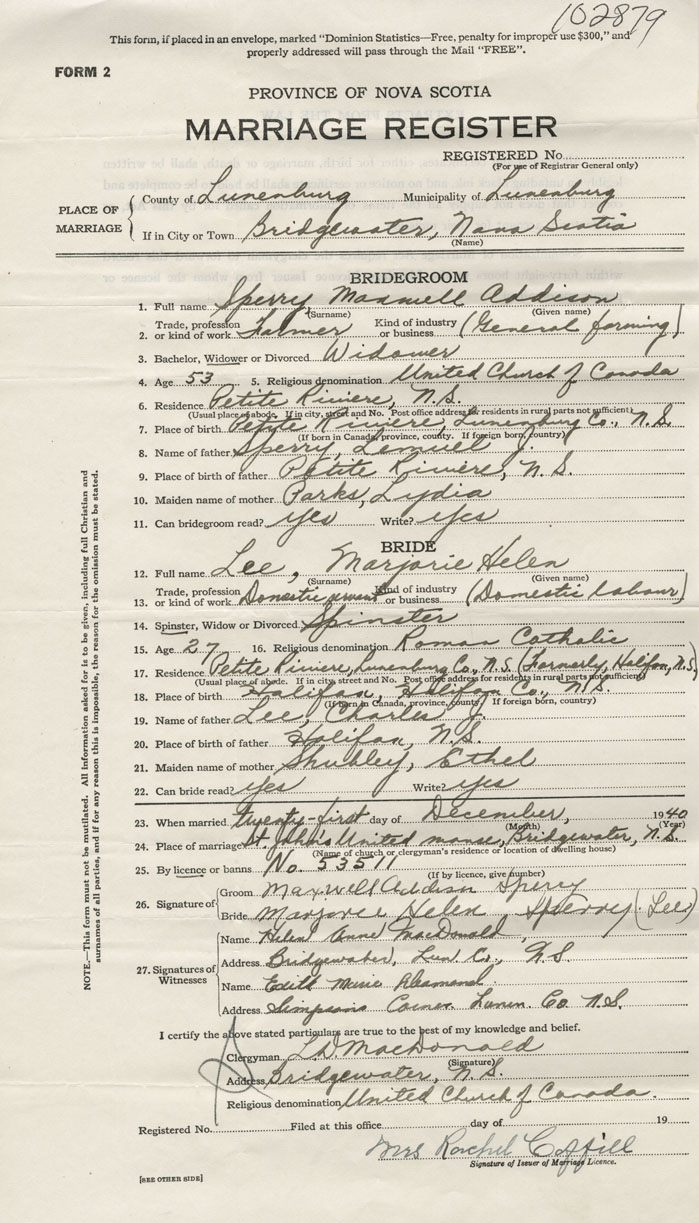 102879
This form, if placed in an envelope, marked "Dominion Statistics—Free, penalty for improper use $300," and
properly addressed will pass through the Mail "FREE".
FORM 2
PROVINCE OF NOVA SCOTIA
MARRIAGE REGISTER
REGISTERED No.
(For use of Registrar General only)
PLACE OF MARRIAGE
County of Lunenburg Municipality of Lunenburg
If in City or Town Bridgewater, Nova Scotia
(Name)
BRIDEGROOM
1. Full name Sperry, Maxwell Addison
(Surname) (Given name)
2. Trade, profession or kind of work Farmer Kind of industry or business (General farming)
3. Bachelor, Widower or Divorced Widower
4. Age 53 5. Religious denomination United Church of Canada
6. Residence Petite Riviere, N.S.
(Usual place of abode. If in city, street and No. Post office address for residents in rural parts not sufficient)
7. Place of birth Petite Riviere, Lunenburg Co., N.S.
(If born in Canada, province, county. If foreign born, country)
8. Name of father Sperry, Lemuel J.
9. Place of birth of father Petite Riviere, N.S.
10. Maiden name of mother Parks, Lydia
11. Can bridegroom read? yes Write? yes
BRIDE
12. Full name Lee, Marjorie Helen
(Surname) (Given name)
13. Trade, profession or kind of work Domestic servant Kind of industry or business (Domestic labour)
14. Spinster, Widow or Divorced Spinster
15. Age 27 16. Religious denomination Roman Catholic
17. Residence Petite Riviere, Lunenburg Co., N.S. (Formerly, Halifax, N.S.)
(Usual place of abode. If in city, street and No. Post office address for residents in rural parts not sufficient)
18. Place of birth Halifax, Halifax Co., N.S.
(If born in Canada, province, county. If foreign born, country)
19. Name of father Lee, Charles J.
20. Place of birth of father Halifax, N.S.
21. Maiden name of mother Ethel
22. Can bride read? yes Write? yes
23. When married twenty-first day of December, 1940
(Month) (Year)
24. Place of marriage St. John's United manse, Bridgewater, N.S.
(Name of church or clergyman's residence or location of dwelling house)
25. By licence or banns No. 53511
(If by licence, give number)
26. Signature of
Groom Maxwell Addison Sperry
Bride Marjorie Helen Sperry (Lee)
27. Signatures of Witnesses
Name Helen Anne MacDonald
Address Bridgewater, Lun Co., N.S.
Name Edith Marie
Address Simpsons Corner Lunen Co N.S.
I certify the above stated particulars are true to the best of my knowledge and belief.
Clergyman MacDonald
(Signature)
Address Bridgewater, N.S.
Religious denomination United Church of Canada.
Registered No. Filed at this office day of 19
Mrs Rachel
Signature of Issuer of Marriage Licence.
[SEE OTHER SIDE]
NOTE.—This form must not be mutilated. All information asked for is to be given, including full Christian and
surnames of all parties, and if for any reason this is impossible, the reason for the omission must be stated.